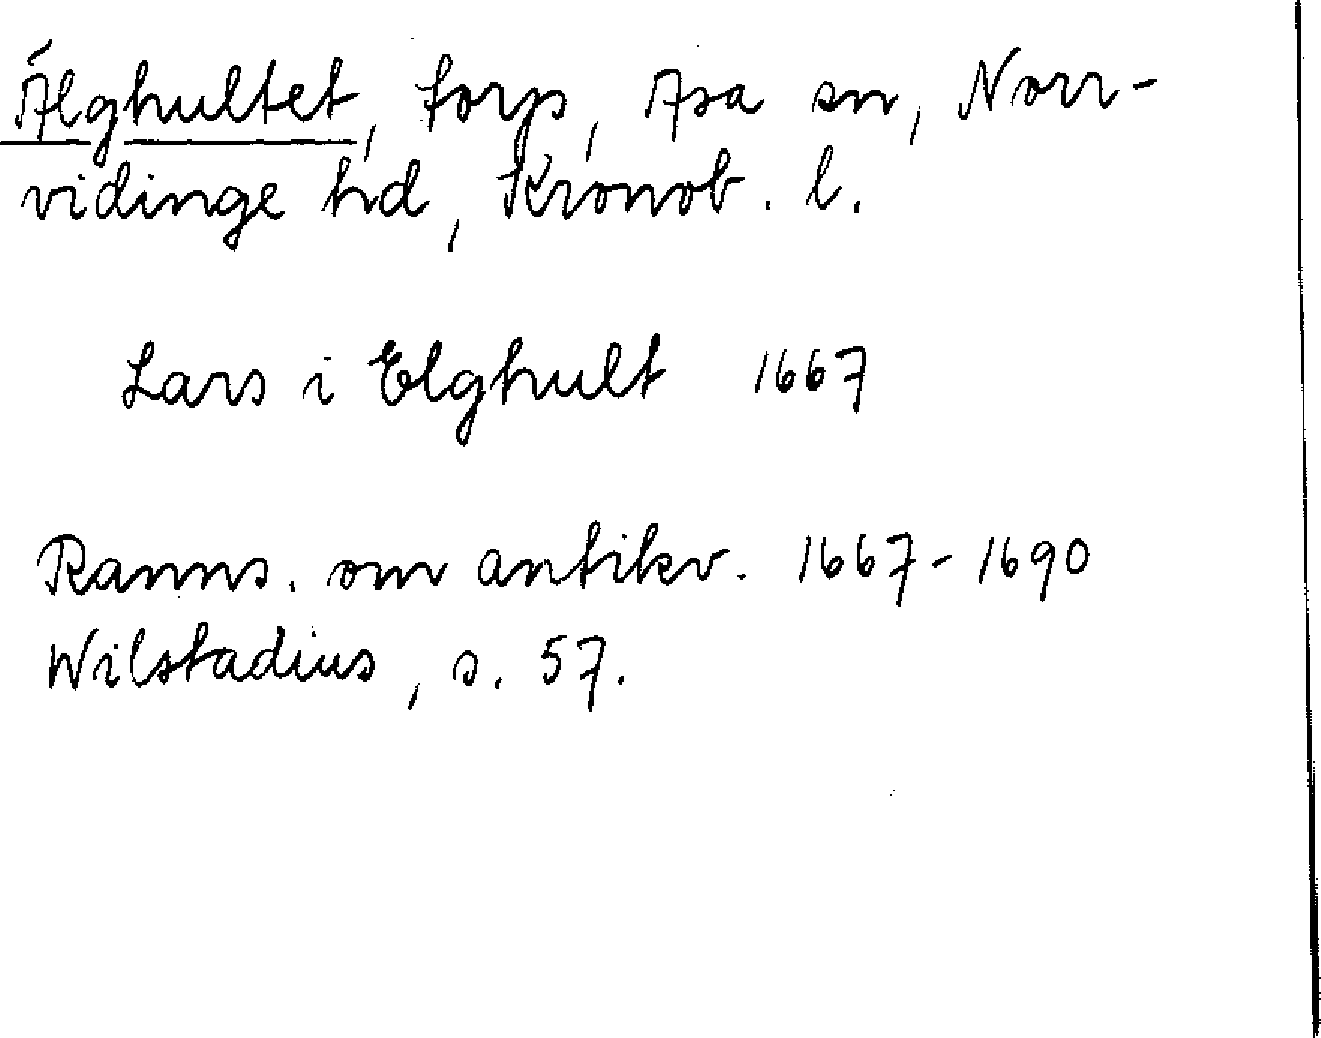 Älghultet, torp, Asa sn, Norr-
vidinge hd, Kronob. l.
Lars i Elghult 1667
Ranns. om antikv. 1667-1690
Wilstadius, s. 57.